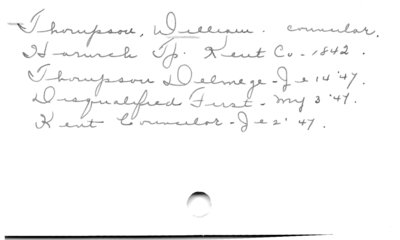 Thompson, William. councilor.
Harwich Tp. Kent Co - 1842.
Thompson Delmege - Je 14 '47.
Disqualified First - My 3 '47.
Kent Councilor - Je 2 '47.